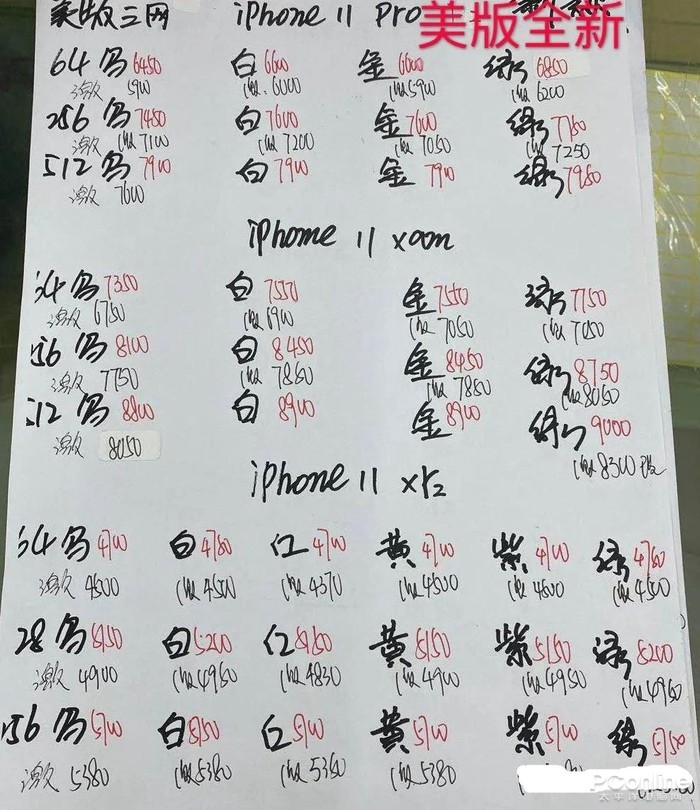 美版三网 iPhone 11 Pro
美版全新
64 乌 6450 白 6600 金 6600 绿 6850
激 5900 激 6000 激 5900 激 6200
256 乌 7450 白 7600 金 7600 绿 7750
激 7100 激 7200 激 7050 激 7250
512 乌 7900 白 7900 金 7900 绿 7950
激 7600
iPhone 11 xoom
64 乌 7350 白 7550 金 7550 绿 7750
激 6750 激 6900 激 7050 激 7050
256 乌 8100 白 8450 金 8450 绿 8750
激 7750 激 7850 激 7850 激 8050
512 乌 8800 白 8900 金 8900 绿 9000
激 8050 激 8300
iPhone 11 xr2
64 乌 4700 白 4780 红 4700 黄 4700 紫 4700 绿 4750
激 4500 激 4500 激 4370 激 4500 激 4500 激 4500
128 乌 5150 白 5200 红 5150 黄 5150 紫 5150 绿 5200
激 4900 激 4950 激 4830 激 4900 激 4950 激 4950
256 乌 5700 白 5750 白 5700 黄 5700 紫 5700 绿 5750
激 5380 激 5380 激 5350 激 5380
PConline
太平洋电脑网